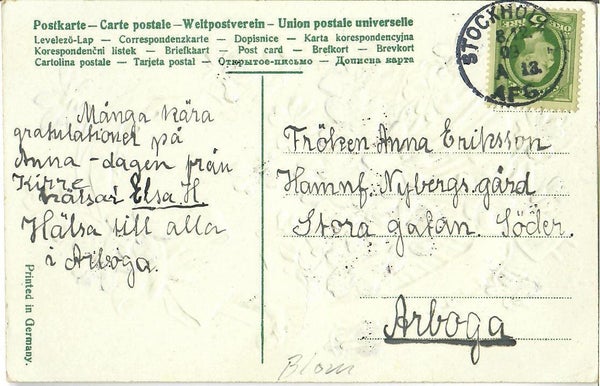 Postkarte – Carte postale – Weltpostverein – Union postale universelle
Levelező-Lap — Correspondenzkarte — Dopisnice — Karta korespondencyjna
Korespondenční listek — Briefkaart — Post card — Brefkort — Brevkort
Cartolina postale — Tarjeta postal — Открытое-письмо — Дописна карта
STOCKHOLM
8.12
09
A 13.
AFG.
5
Många kära
gratulationer på
Anna-dagen från
Kirre
hälsar Elsa H
Hälsa till alla
i Arboga.
Fröken Anna Eriksson
Hamnf. Nybergs. gård
Stora gatan. Söder.
Arboga
Printed in Germany.
Blom